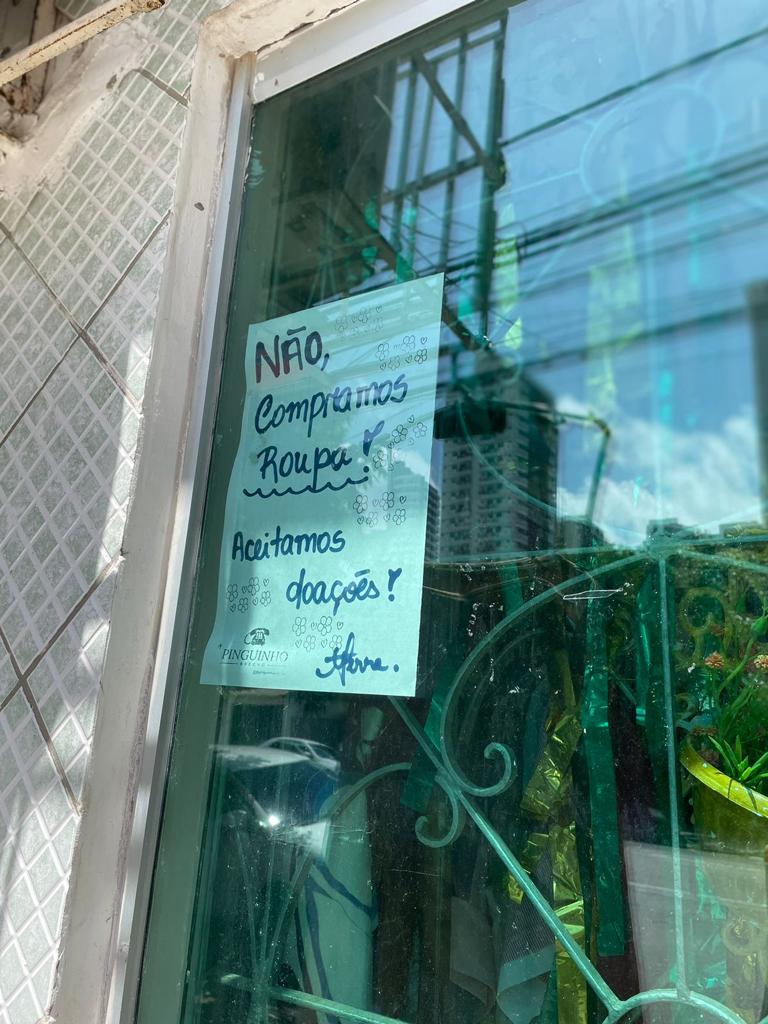 NÃO,
Compramos
Roupa!
Aceitamos
doações!
PINGUINHO
BRECHÓ